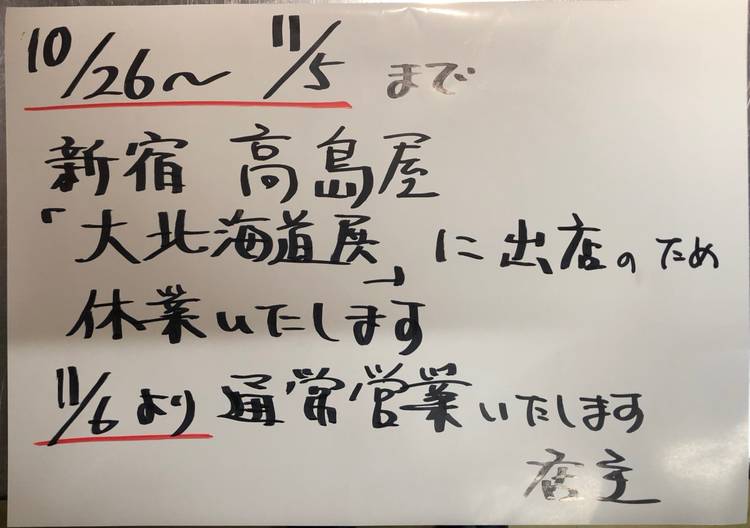 10/26～11/5 まで
新宿 高島屋
「大北海道展」に出店のため
休業いたします
11/6より通常営業いたします
店主